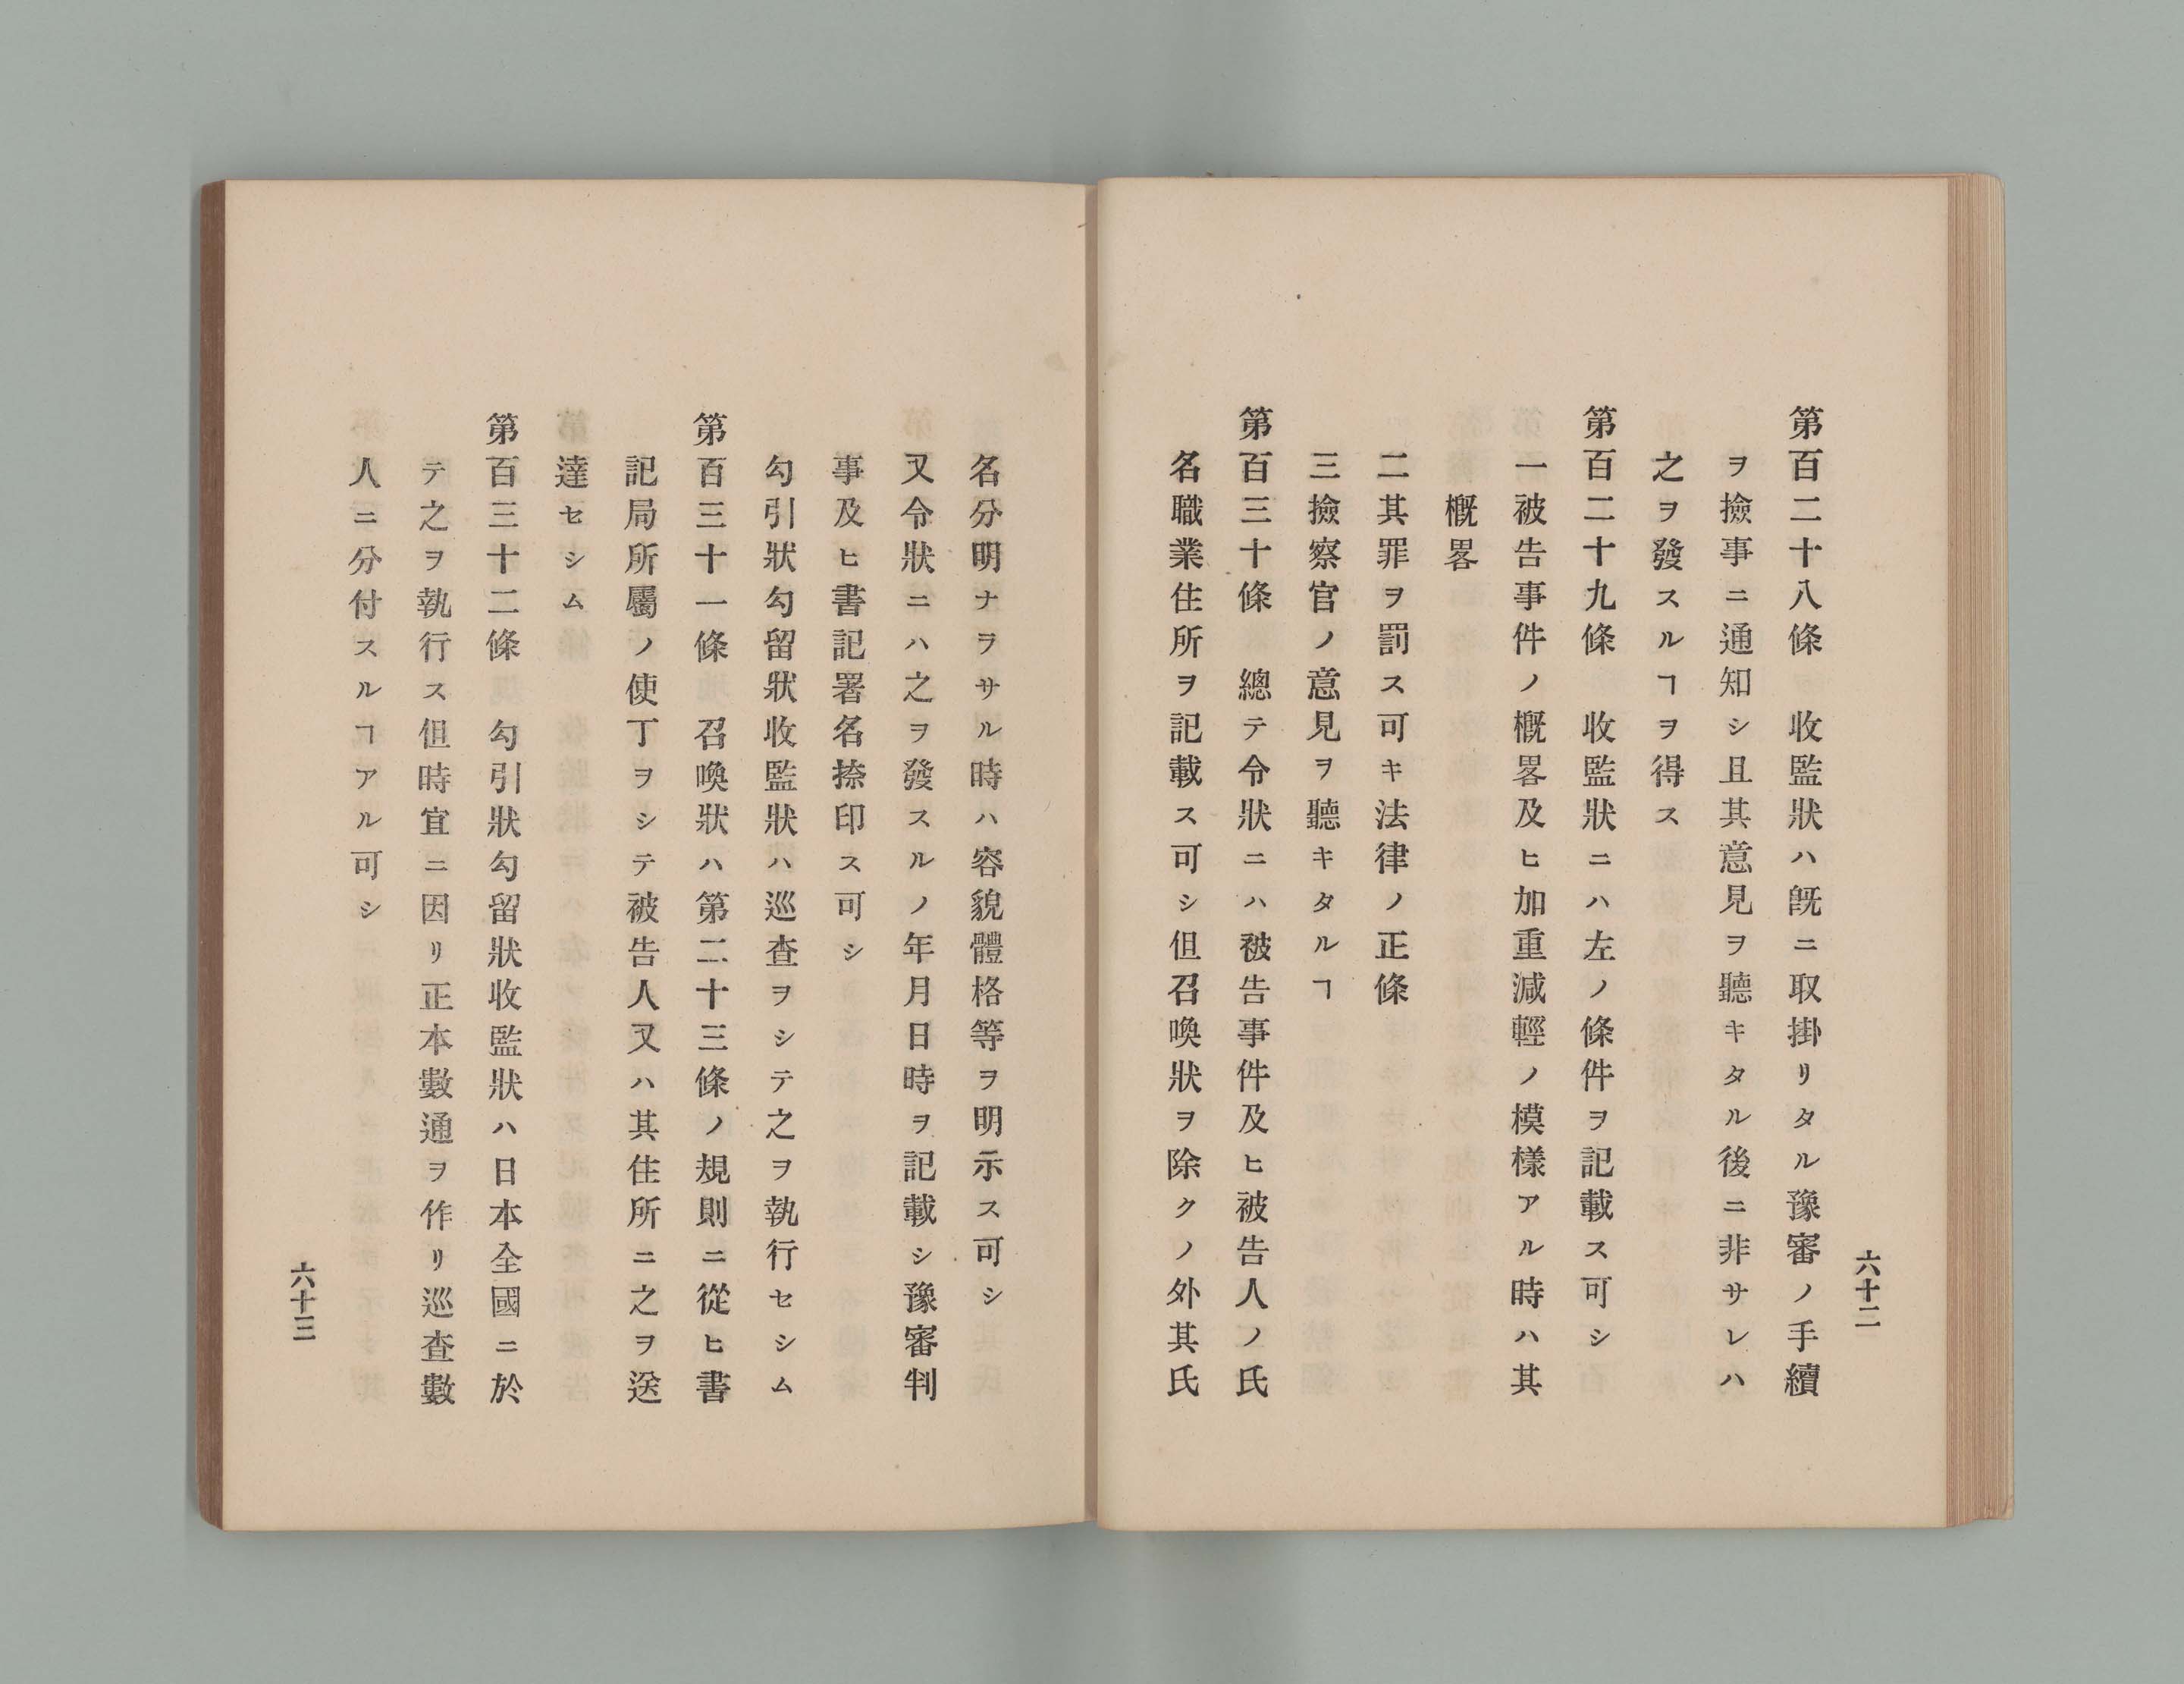 六十二
第百二十八條　收監狀ハ旣ニ取掛リタル豫審ノ手續
ヲ撿事ニ通知シ且其意見ヲ聽キタル後ニ非サレハ
之ヲ發スルヿヲ得ス
第百二十九條　收監狀ニハ左ノ條件ヲ記載ス可シ
一被告事件ノ槪畧及ヒ加重減輕ノ模樣アル時ハ其
槪畧
二其罪ヲ罰ス可キ法律ノ正條
三撿察官ノ意見ヲ聽キタルヿ
第百三十條　總テ令狀ニハ被告事件及ヒ被告人ノ氏
名職業住所ヲ記載ス可シ但召喚狀ヲ除クノ外其氏
名分明ナラサル時ハ容貌體格等ヲ明示ス可シ
又令狀ニハ之ヲ發スルノ年月日時ヲ記載シ豫審判
事及ヒ書記署名捺印ス可シ
勾引狀勾留狀收監狀ハ巡査ヲシテ之ヲ執行セシム
第百三十一條　召喚狀ハ第二十三條ノ規則ニ從ヒ書
記局所屬ノ使丁ヲシテ被告人又ハ其住所ニ之ヲ送
達セシム
第百三十二條　勾引狀勾留狀收監狀ハ日本全國ニ於
テ之ヲ執行ス但時宜ニ因リ正本數通ヲ作リ巡査數
人ニ分付スルヿアル可シ
六十三